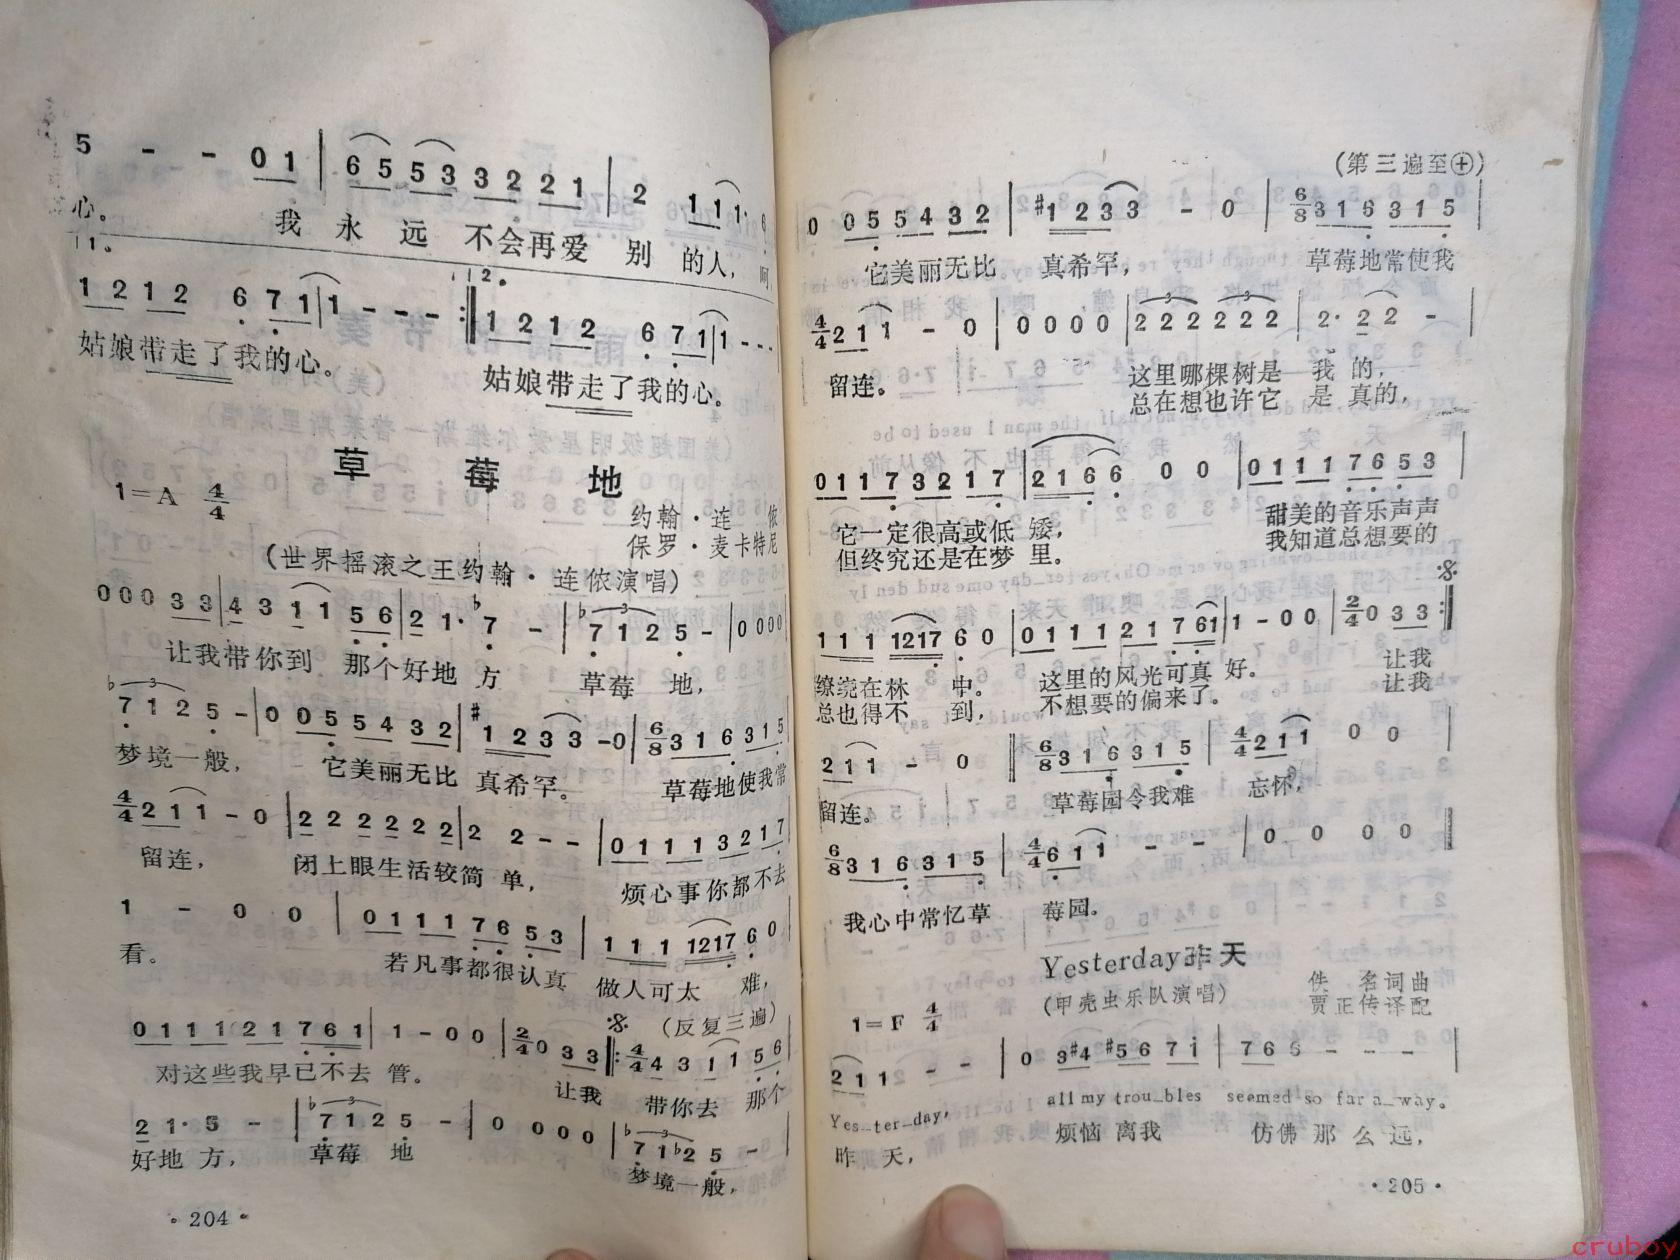 5 - - 0 1 | 6 5 5 3 3 2 2 1 | 2 1 1 1· 6
心。 我 永 远 不会再爱 别 的人, 啊,
1.
1 2 1 2 6 7 1 | 1 - - - :‖ 2. 1 2 1 2 6 7 1 | 1 - - -
姑娘带走了我的心。 姑娘带走了我的心。
草 莓 地
1=A 4/4
约翰·连 侬
保罗·麦卡特尼
(世界摇滚之王约翰·连侬演唱)
0 0 0 3 3 | 4 3 1 1 5 6 | 2 1· ♭7 - | 7 1 2 5 - | 0 0 0 0
让我带你到 那个好地 方 草莓 地,
♭7 1 2 5 - | 0 0 5 5 4 3 2 | #1 2 3 3 - 0 | 6/8 3 1 6 3 1 5
梦境一般, 它美丽无比 真希罕。 草莓地使我常
4/4 2 1 1 - 0 | 2 2 2 2 2 2 | 2 2 - - | 0 1 1 1 3 2 1 7
留连, 闭上眼生活较简 单, 烦心事你都不去
1 - 0 0 | 0 1 1 1 7 6 5 3 | 1 1 1 1217 6 0
看。 若凡事都很认真 做人可太 难,
(反复三遍)
0 1 1 1 2 1 7 6 1 | 1 - 0 0 | 2/4 0 3 3 ‖: 4/4 4 3 1 1 5 6
对这些我早已不去 管。 让我 带你去 那个
2 1· 5 - | ♭7 1 2 5 - | 0 0 0 0 | ♭7 1 ♭2 5 -
好地 方, 草莓 地 梦境一般,
·204·
(第三遍至⊕)
0 0 5 5 4 3 2 | #1 2 3 3 - 0 | 6/8 3 1 6 3 1 5
它美丽无比 真希罕, 草莓地常使我
4/4 2 1 1 - 0 | 0 0 0 0 | 2 2 2 2 2 2 | 2· 2 2 -
留连。 这里哪棵树是 我 的,
总在想也许它 是 真的,
0 1 1 7 3 2 1 7 | 2 1 6 6 0 0 | 0 1 1 1 7 6 5 3
它一定很高或低 矮, 甜美的音乐声声
但终究还是在梦 里。 我知道总想要的
1 1 1 1217 6 0 | 0 1 1 1 2 1 7 61 | 1 - 0 0 | 2/4 0 3 3 :‖
缭绕在林 中。 这里的风光可真 好。 让我
总也得不 到, 不想要的偏来了。 让我
2 1 1 - 0 ‖ 6/8 3 1 6 3 1 5 | 4/4 2 1 1 0 0
留连。 草莓园令我难 忘怀,
6/8 3 1 6 3 1 5 | 4/4 6 1 1 - - | 0 0 0 0 ‖
我心中常忆草 莓园。
Yesterday昨天
(甲壳虫乐队演唱)
佚 名词曲
贾正传译配
1=F 4/4
2 1 1 - - | 0 3 #4 #5 6 7 i | 7 6 6 - - -
Yes-ter-day, all my trou-bles seemed so far a-way.
昨 天, 烦恼 离我 仿佛 那 么 远,
·205·
cruboy